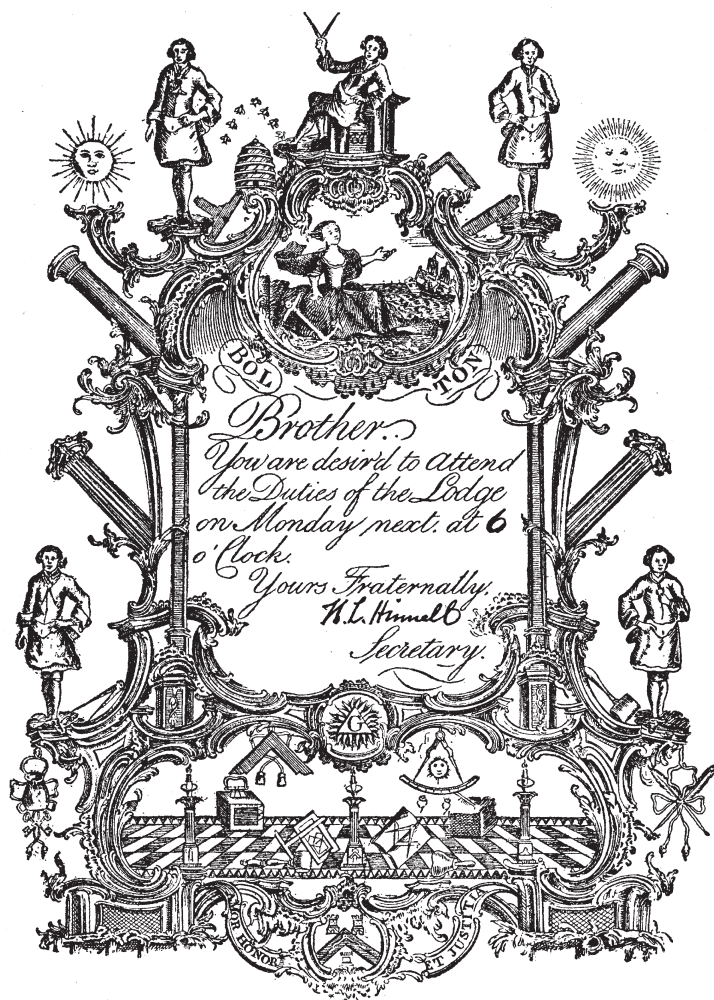 BOL TON
Brother.
You are desir'd to Attend
the Duties of the Lodge
on Monday next. at 6
o'Clock.
Yours Fraternally.
Secretary.
G
HONOR ET JUSTITI